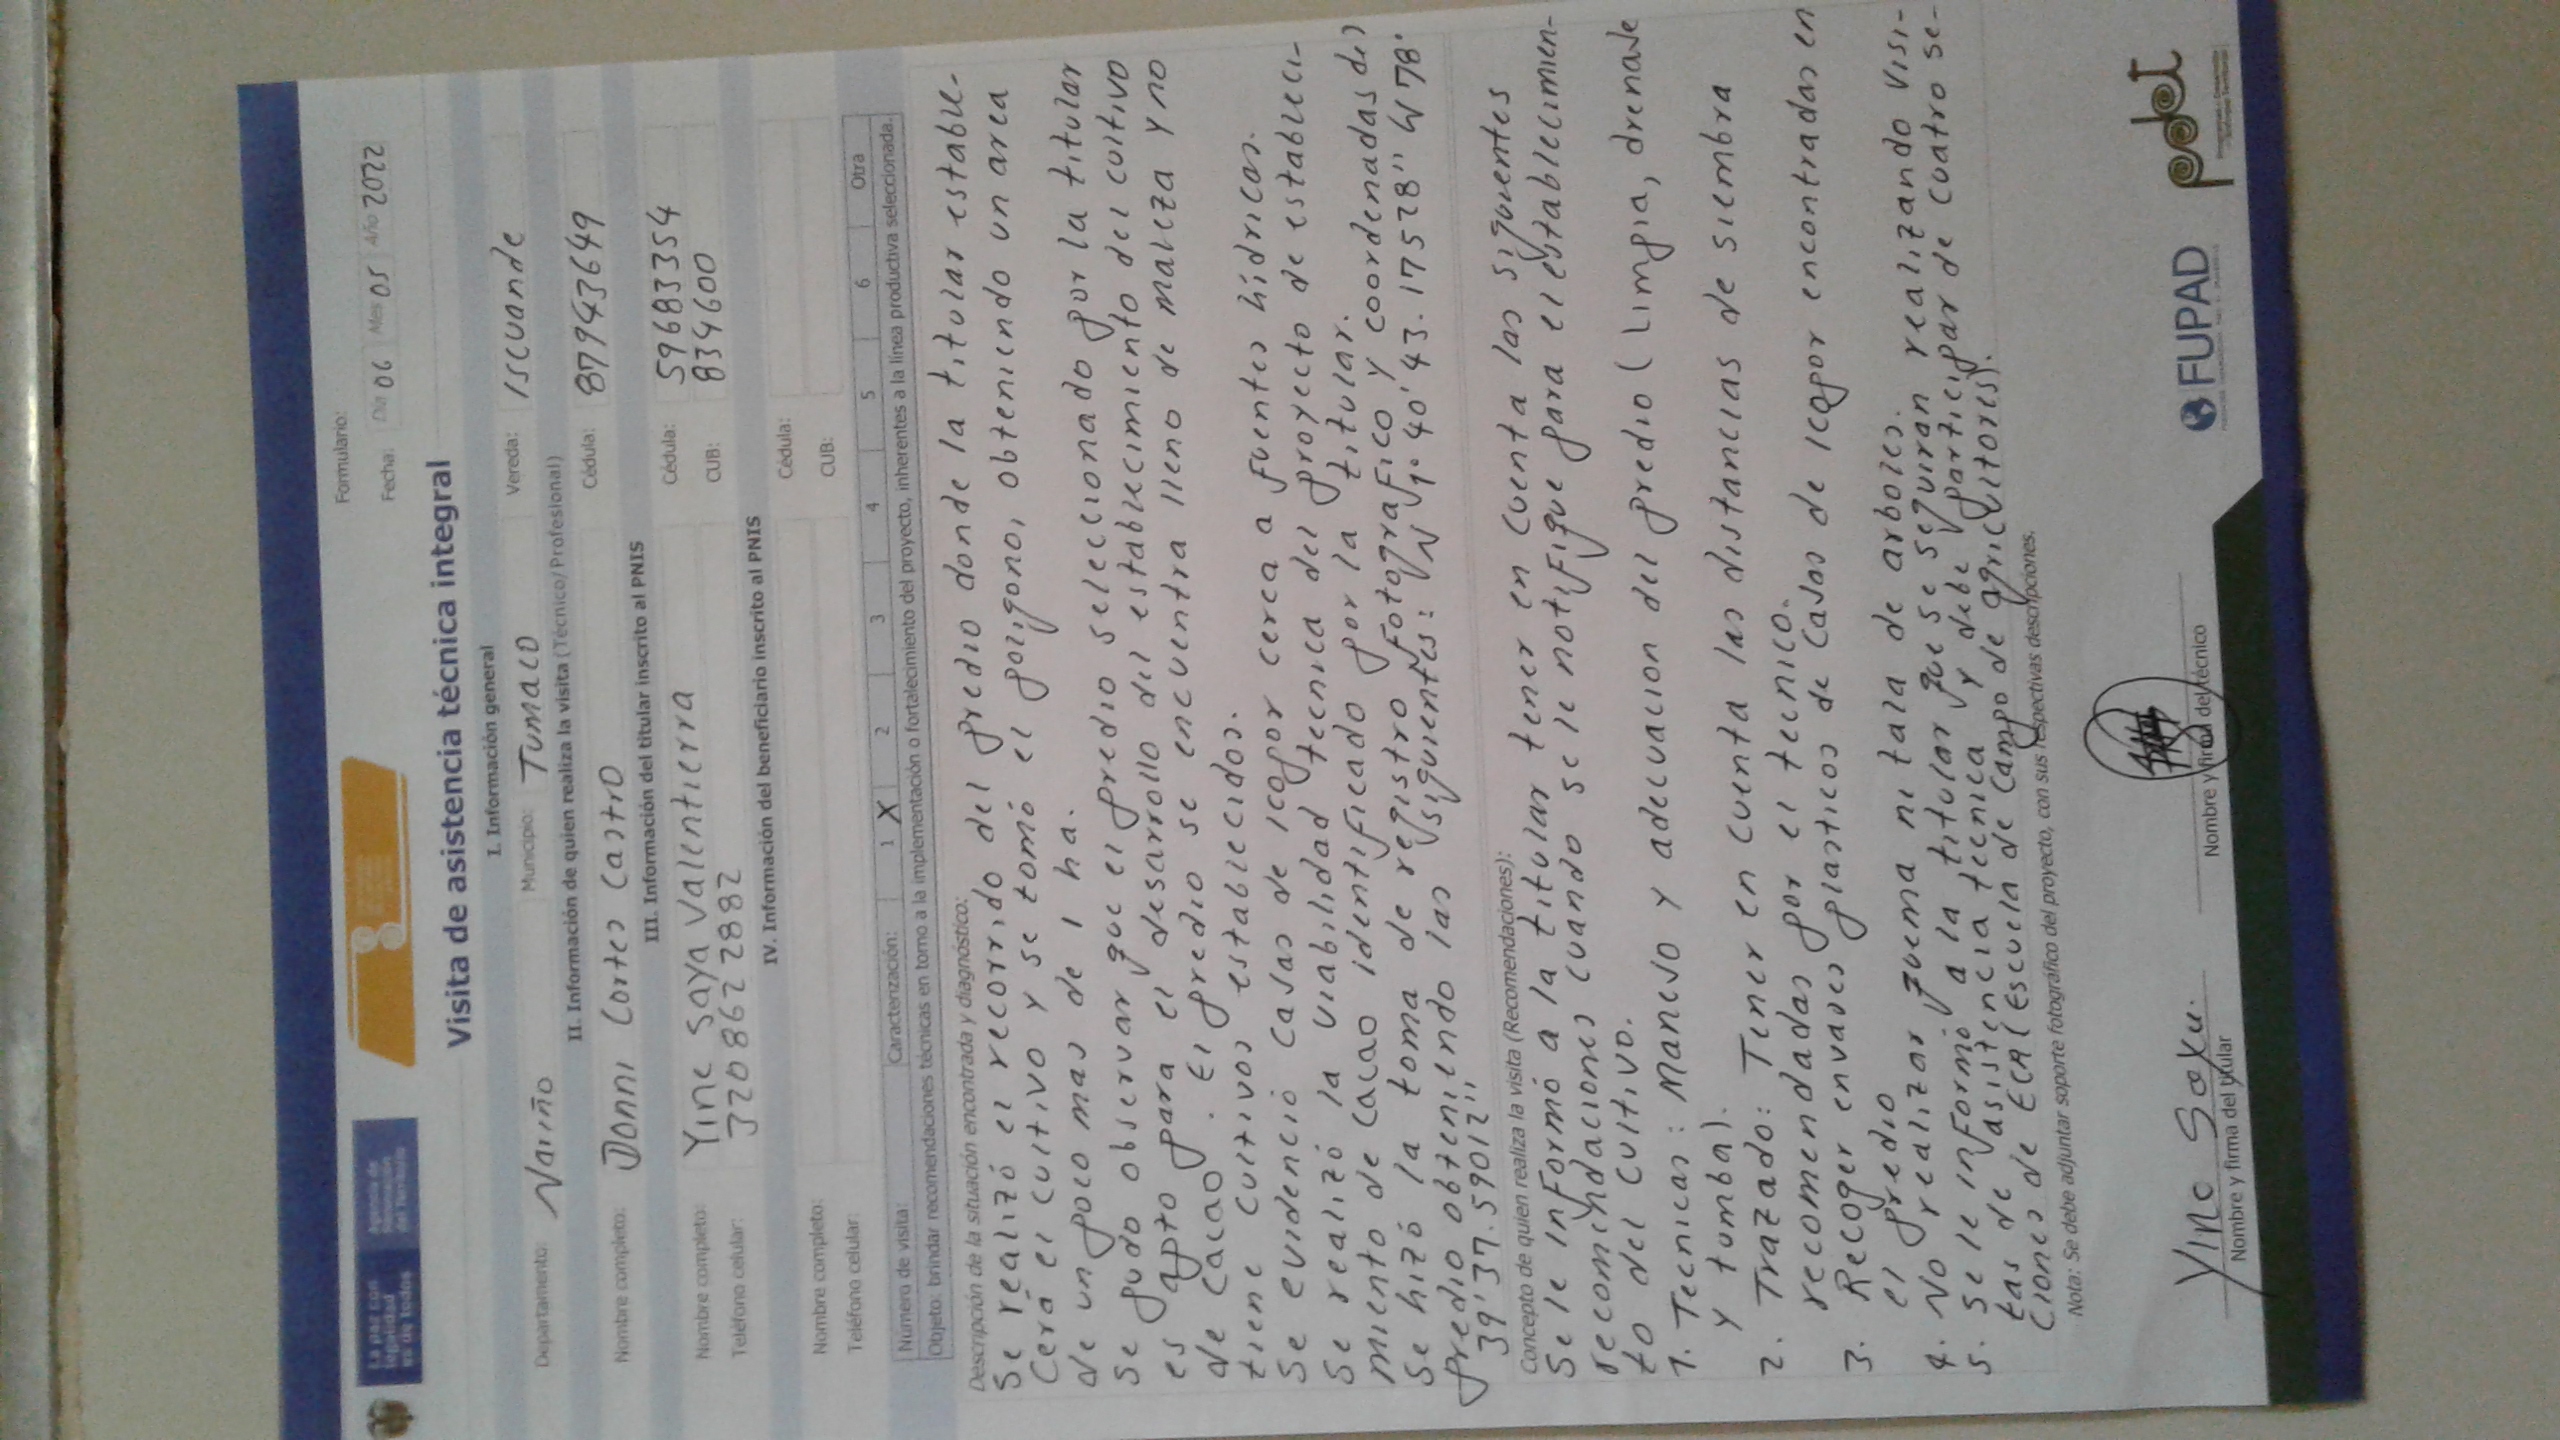 La paz con
legalidad
es de todos
Agencia de
Renovación
del Territorio
Formulario:
Fecha: Día 06 Mes 05 Año 2022
Visita de asistencia técnica integral
I. Información general
Departamento: Nariño Municipio: Tumaco Vereda: Iscuande
II. Información de quien realiza la visita (Técnico/Profesional)
Nombre completo: Donni Cortes Castro Cédula: 87943649
III. Información del titular inscrito al PNIS
Nombre completo: Yine Saya Valentierra Cédula: 59683354
Teléfono celular: 3208622882 CUB: 834600
IV. Información del beneficiario inscrito al PNIS
Nombre completo: Cédula:
Teléfono celular: CUB:
Número de visita: Caracterización: 1 X 2 3 4 5 6 Otra
Objeto: brindar recomendaciones técnicas en torno a la implementación o fortalecimiento del proyecto, inherentes a la línea productiva seleccionada.
Descripción de la situación encontrada y diagnóstico:
Se realizó el recorrido del predio donde la titular estable-
Cerá el cultivo y se tomó el poligono, obteniendo un area
de un poco mas de 1 ha.
Se pudo observar que el predio seleccionado por la titular
es apto para el desarrollo del establecimiento del cultivo
de cacao. El predio se encuentra lleno de maleza y no
tiene cultivos establecidos.
Se evidenció cajas de icopor cerca a fuentes hídricas.
Se realizó la viabilidad tecnica del proyecto de estableci-
miento de cacao identificado por la titular.
Se hizó la toma de registro fotografico y coordenadas del
predio obteniendo las siguientes: N 1° 40' 43.17528" W 78°
39' 37.59012"
Concepto de quien realiza la visita (Recomendaciones):
Se le informó a la titular tener en cuenta las siguientes
recomendaciones cuando se le notifique para el establecimien-
to del cultivo.
1. Tecnicas: Manejo y adecuacion del predio (Limpia, drenaje
y tumba).
2. Trazado: Tener en cuenta las distancias de siembra
recomendadas por el tecnico.
3. Recoger envases plasticos de cajas de icopor encontradas en
el predio
4. No realizar quema ni tala de arboles.
5. Se le informó a la titular que se seguiran realizando visi-
tas de asistencia tecnica y debe participar de cuatro se-
ciones de ECA (Escuela de campo de agricultores).
Nota: Se debe adjuntar soporte fotográfico del proyecto, con sus respectivas descripciones.
Yine Saya
Nombre y firma del titular
Nombre y firma del técnico
FUPAD
pdet